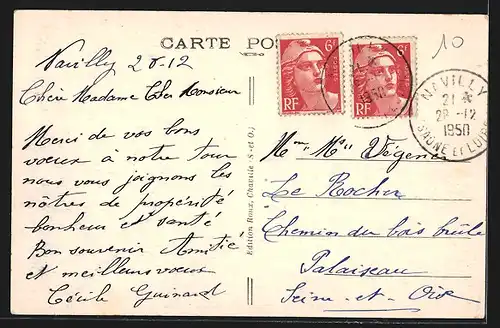 CARTE PO
10
Navilly 28.12
Chère Madame Cher Monsieur
Merci de vos bons
voeux à notre tour
nous vous joignons les
nôtres de propérité
bonheur et santé
Bon souvenir Amitié
et meilleurs voeux
Cécile Guinard
Edition Roux, Chaville (S.-et-O.)
6F
RF
6F
RF
1950
NAVILLY
21 *
28 -12
1950
SAONE ET LOIRE
Mme Mr Wégener
Le Rocher
Chemin du bois brûlé
Palaiseau
Seine-et-Oise